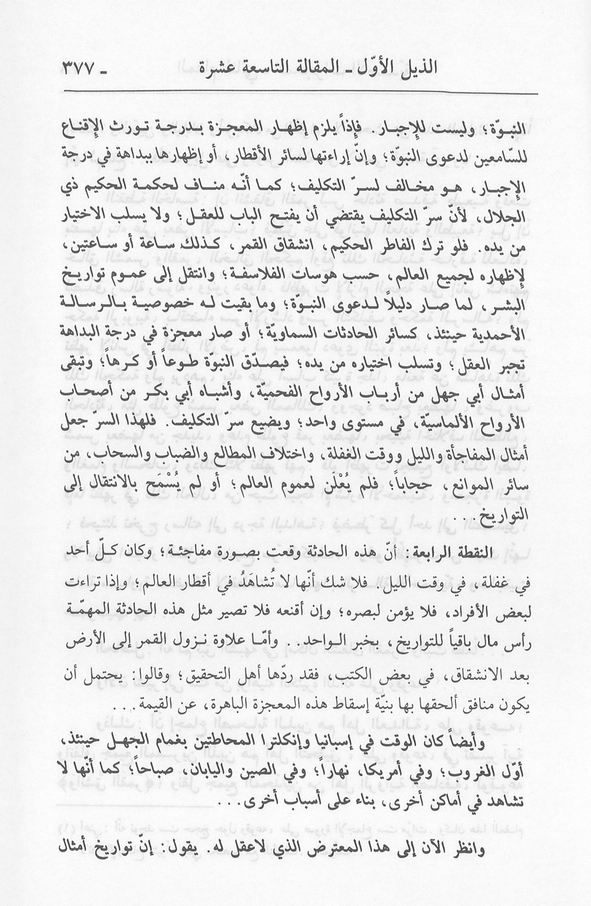 الذيل الأوّل ـ المقالة التاسعة عشرة ـ ٣٧٧
النبوّة؛ وليست للإجبار. فإذاً يلزم إظهار المعجزة بدرجة تورث الإقناع
للسّامعين لدعوى النبوّة؛ وإنّ إراءتها لسائر الأقطار، أو إظهارها ببداهة في درجة
الإجبار، هو مخالف لسرّ التكليف؛ كما أنّه مناف لحكمة الحكيم ذي
الجلال، لأنّ سرّ التكليف يقتضي أن يفتح الباب للعقل؛ ولا يسلب الاختيار
من يده. فلو ترك الفاطر الحكيم، انشقاق القمر، كذلك ساعة أو ساعتين،
لإظهاره لجميع العالم، حسب هوسات الفلاسفة؛ وانتقل إلى عموم تواريخ
البشر، لما صار دليلاً لدعوى النبوّة؛ وما بقيت له خصوصية بالرسالة
الأحمدية حينئذ، كسائر الحادثات السماويّة؛ أو صار معجزة في درجة البداهة
تجبر العقل؛ وتسلب اختياره من يده؛ فيصدّق النبوّة طوعاً أو كرهاً؛ وتبقى
أمثال أبي جهل من أرباب الأرواح الفحميّة، وأشباه أبي بكر من أصحاب
الأرواح الألماسيّة، في مستوى واحد؛ ويضيع سرّ التكليف. فلهذا السرّ جعل
أمثال المفاجأة والليل ووقت الغفلة، واختلاف المطالع والضباب والسحاب، من
سائر الموانع، حجاباً؛ فلم يُعْلَن لعموم العالم؛ أو لم يُسْمَح بالانتقال إلى
التواريخ...
النقطة الرابعة: أنّ هذه الحادثة وقعت بصورة مفاجئة؛ وكان كلّ أحد
في غفلة، في وقت الليل. فلا شك أنّها لا تُشاهَدُ في أقطار العالم؛ وإذا تراءت
لبعض الأفراد، فلا يؤمن لبصره؛ وإن أقنعه فلا تصير مثل هذه الحادثة المهمّة
رأس مال باقياً للتواريخ، بخبر الواحد.. وأمّا علاوة نزول القمر إلى الأرض
بعد الانشقاق، في بعض الكتب، فقد ردّها أهل التحقيق؛ وقالوا: يحتمل أن
يكون منافق ألحقها بها بنيّة إسقاط هذه المعجزة الباهرة، عن القيمة...
وأيضاً كان الوقت في إسبانيا وإنكلترا المحاطتين بغمام الجهل حينئذ،
أوّل الغروب؛ وفي أمريكا، نهاراً؛ وفي الصين واليابان، صباحاً؛ كما أنّها لا
تشاهد في أماكن أخرى، بناء على أسباب أخرى...
وانظر الآن إلى هذا المعترض الذي لاعقل له. يقول: إنّ تواريخ أمثال